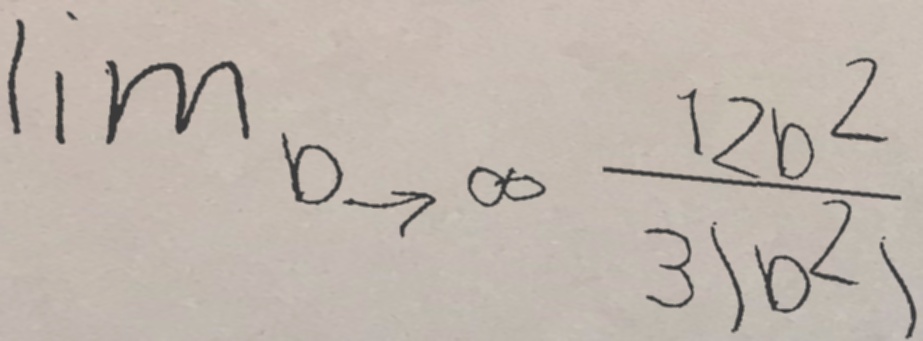 lim b→∞ 12b²
3(b²)